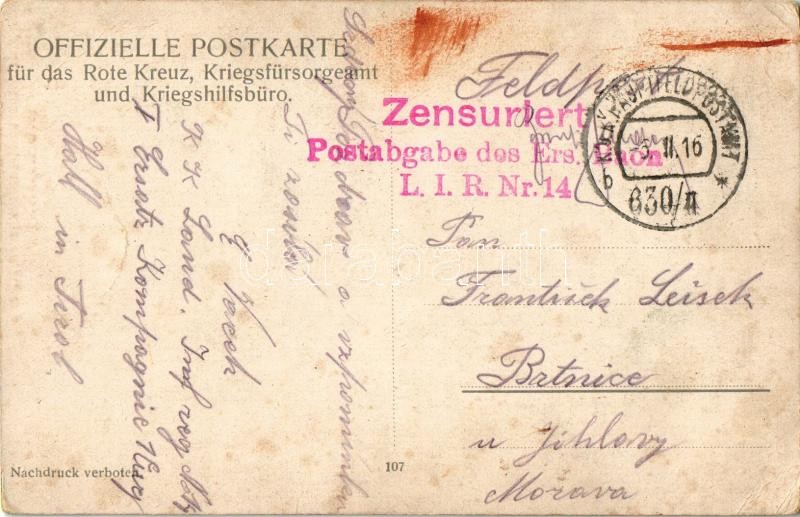 OFFIZIELLE POSTKARTE
für das Rote Kreuz, Kriegsfürsorgeamt
und Kriegshilfsbüro.
Feldpost
Zensuriert
Postabgabe des Ers. Baon
L. I. R. Nr. 14
K.u.K. HAUPTFELDPOSTAMT
II 16
b *
630/II
Pan
František Leisek
Brtnice
u Jihlavy
Morava
pozdrav a vzpomínku
Ti zasílá
E Vacek
K K Land. Inf reg No 14
I Ersatz Kompagnie
Hall in Tirol
Nachdruck verboten
107
darabanth